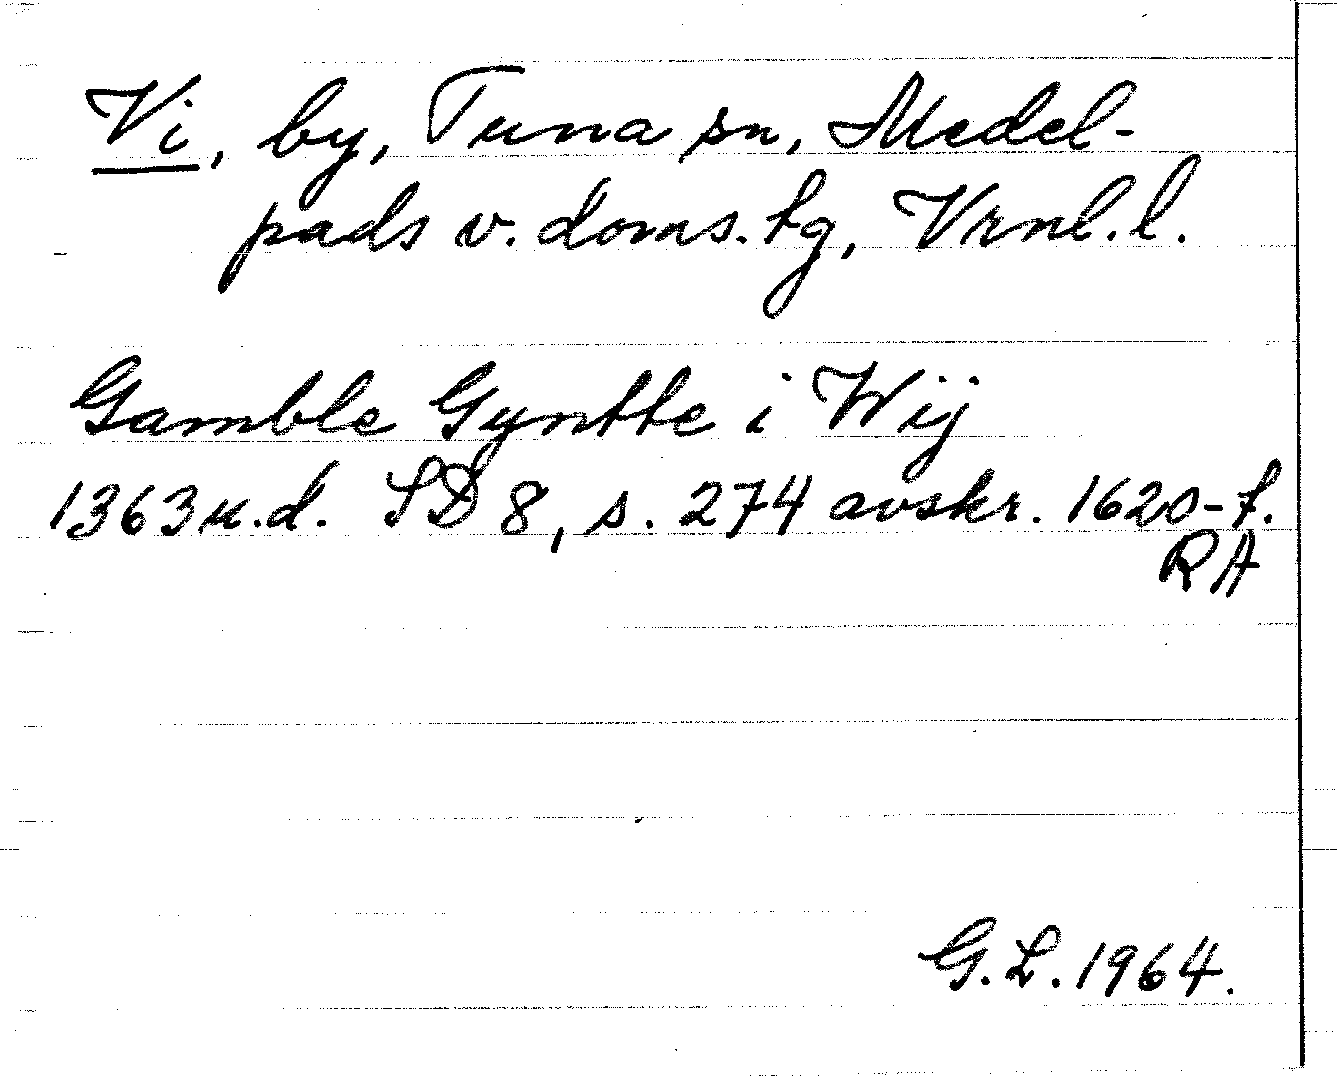 Vi, by, Tuna sn, Medel-
pads v. doms. tg, Vrnl. l.
Gamble Gyntte i Wij
1363 u.d. SD 8, s. 274 avskr. 1620-t.
RA
G.L. 1964.